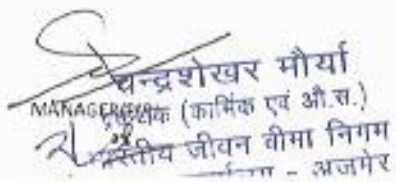 चन्द्रशेखर मौर्या
MANAGER
(कार्मिक एवं औ.स.)
भारतीय जीवन बीमा निगम
- अजमेर